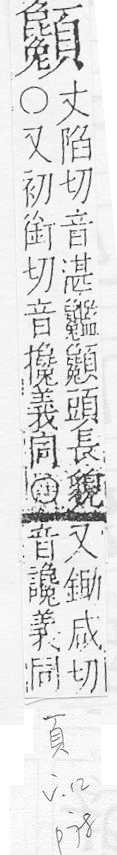 䫴
丈陷切音湛䫴頭長貌
○又初銜切音攙義同
又鋤咸切
音讒義同
頁
v.12
p78